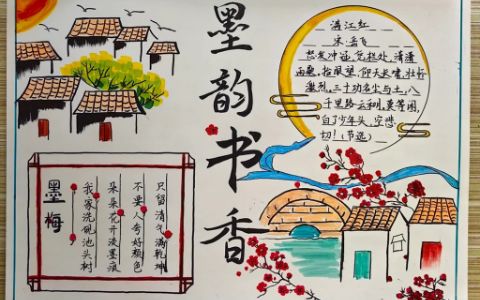 墨韵书香
满江红
宋·岳飞
怒发冲冠,凭栏处、潇潇
雨歇。抬望眼,仰天长啸,壮怀
激烈。三十功名尘与土,八
千里路云和月。莫等闲,
白了少年头,空悲
切!(节选)
墨梅
我家洗砚池头树
朵朵花开淡墨痕
不要人夸好颜色
只留清气满乾坤